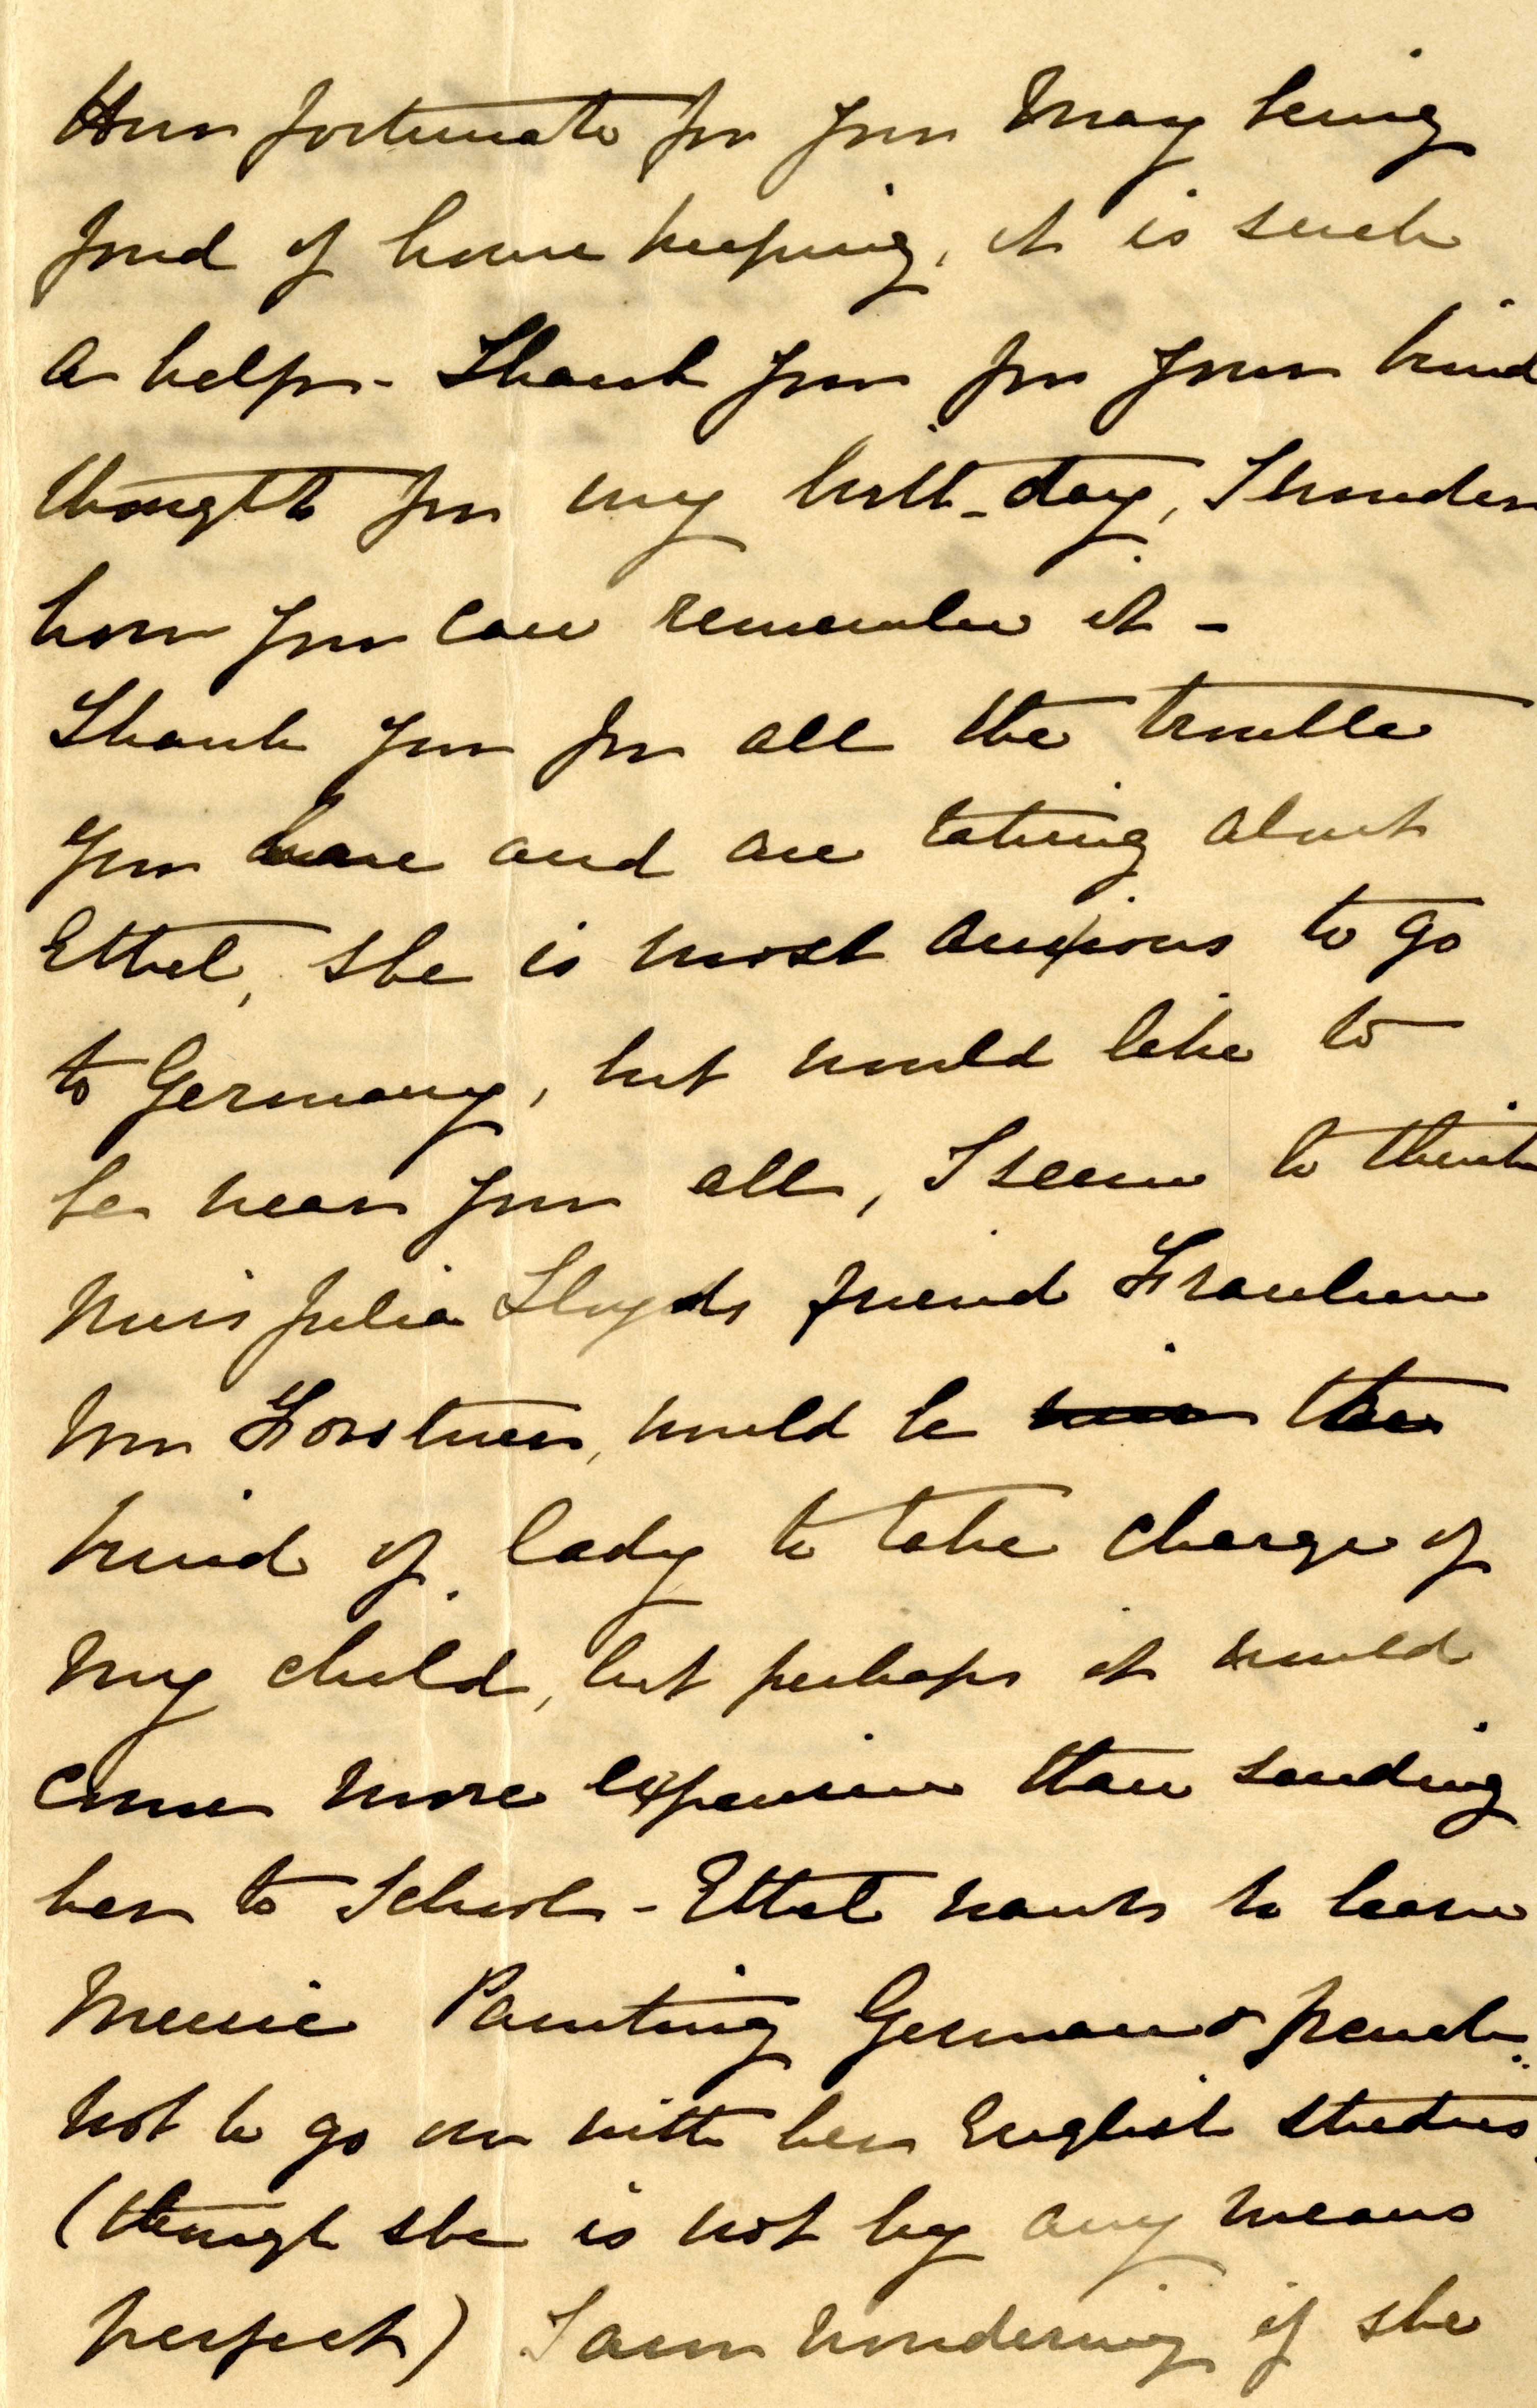 How fortunate for you May being
fond of house keeping, it is such
a help - Thank you for your kind
thought for my birth-day, I wonder
how you can remember it -
Thank you for all the trouble
you have and are taking about
Ethel, she is most anxious to go
to Germany, but would like to
be near you all, I seem to think
Miss Julia Lloyds friend Fraulein
von Forstner, would be the
kind of lady to take charge of
my child, but perhaps it would
come more expensive than sending
her to School - Ethel wants to learn
Music Painting German & french
not to go on with her English studies
(though she is not by any means
perfect) I am wondering if she